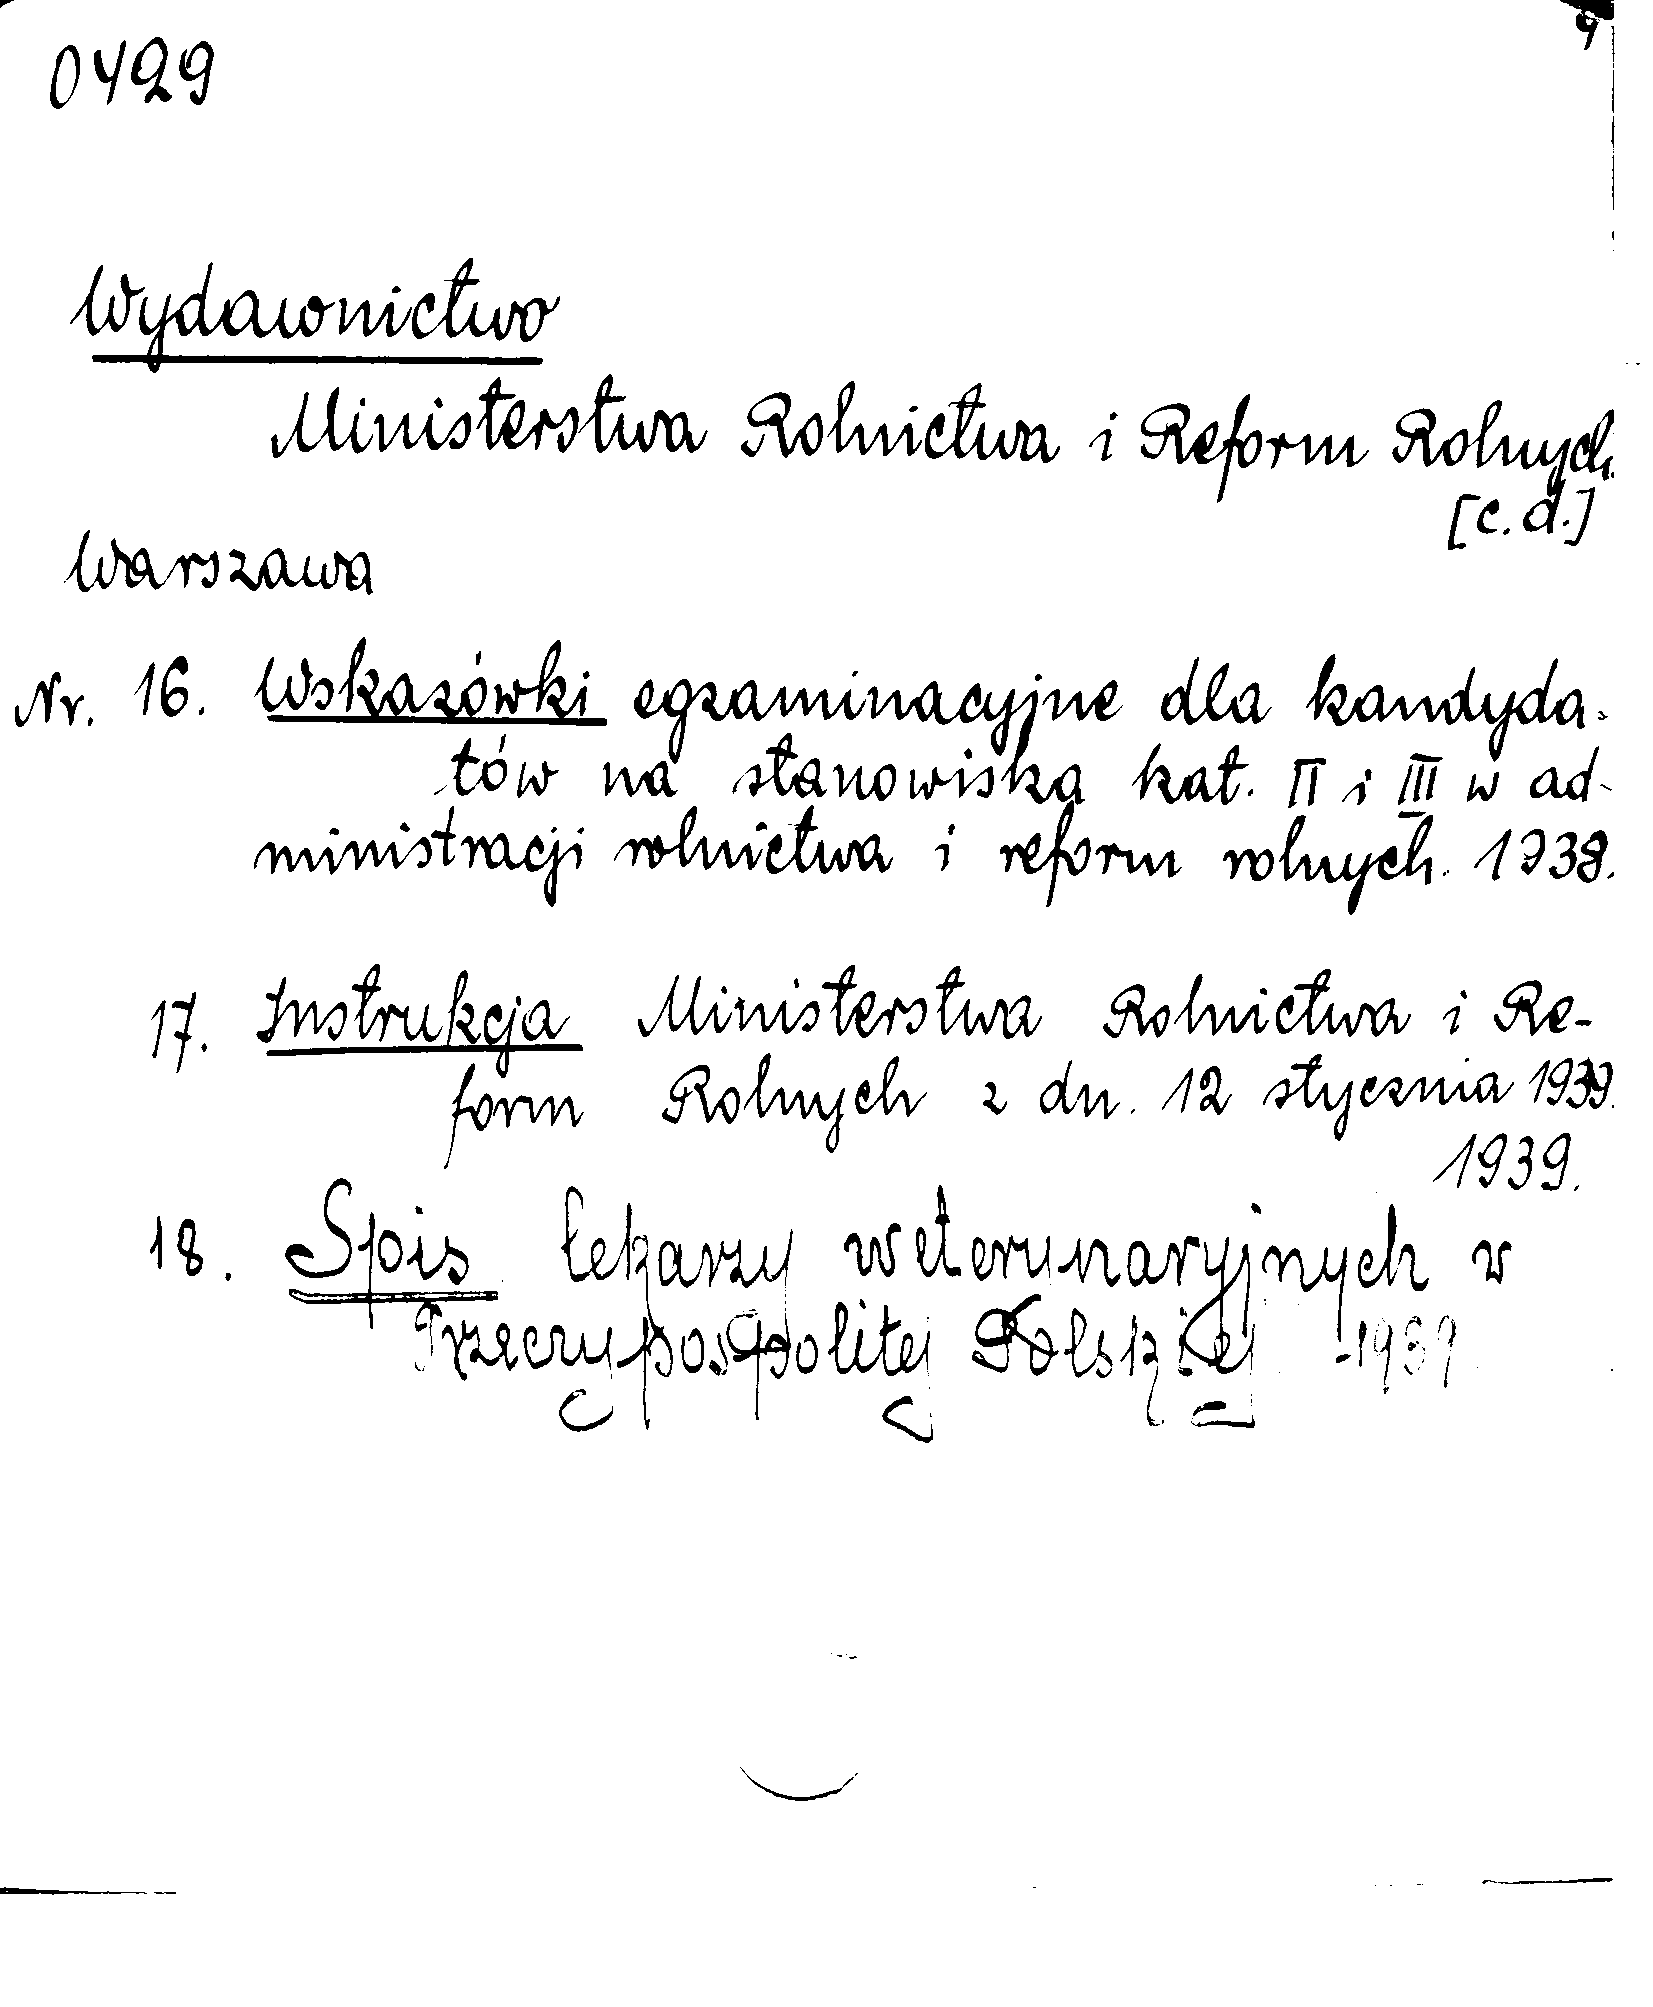 0429
9
Wydawnictwo
Ministerstwa Rolnictwa i Reform Rolnych
[c.d.]
Warszawa
Nr. 16. Wskazówki egzaminacyjne dla kandyda-
tów na stanowiska kat. II i III w ad-
ministracji rolnictwa i reform rolnych. 1938.
17. Instrukcja Ministerstwa Rolnictwa i Re-
form Rolnych z dn. 12 stycznia 1939.
1939.
18. Spis lekarzy weterynaryjnych w
Rzeczypospolitej Polskiej 1939